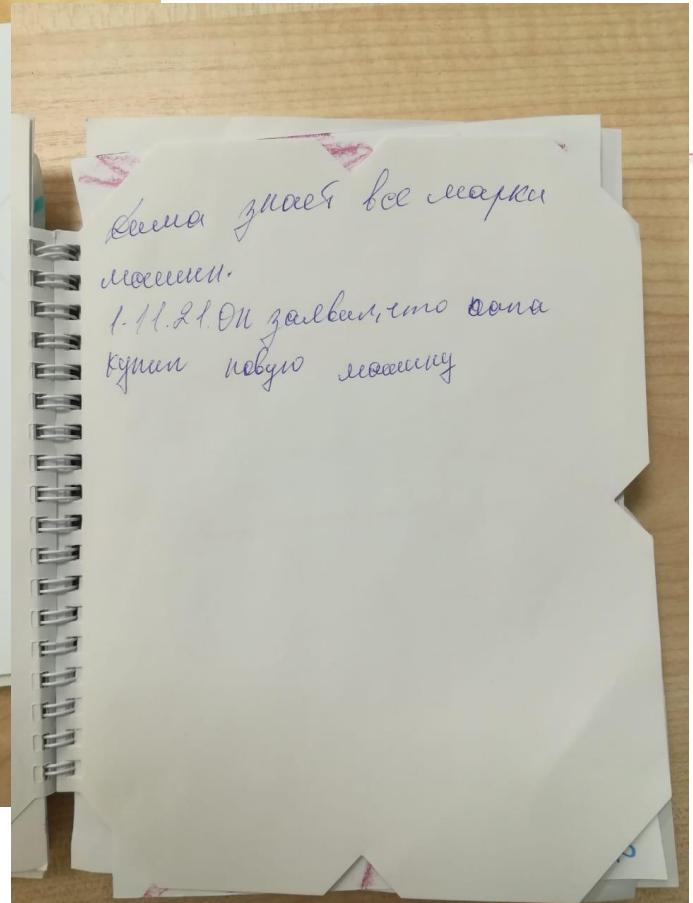 Дима знает все марки
машин.
1.11.21. Он заявил, что папа
купил новую машину